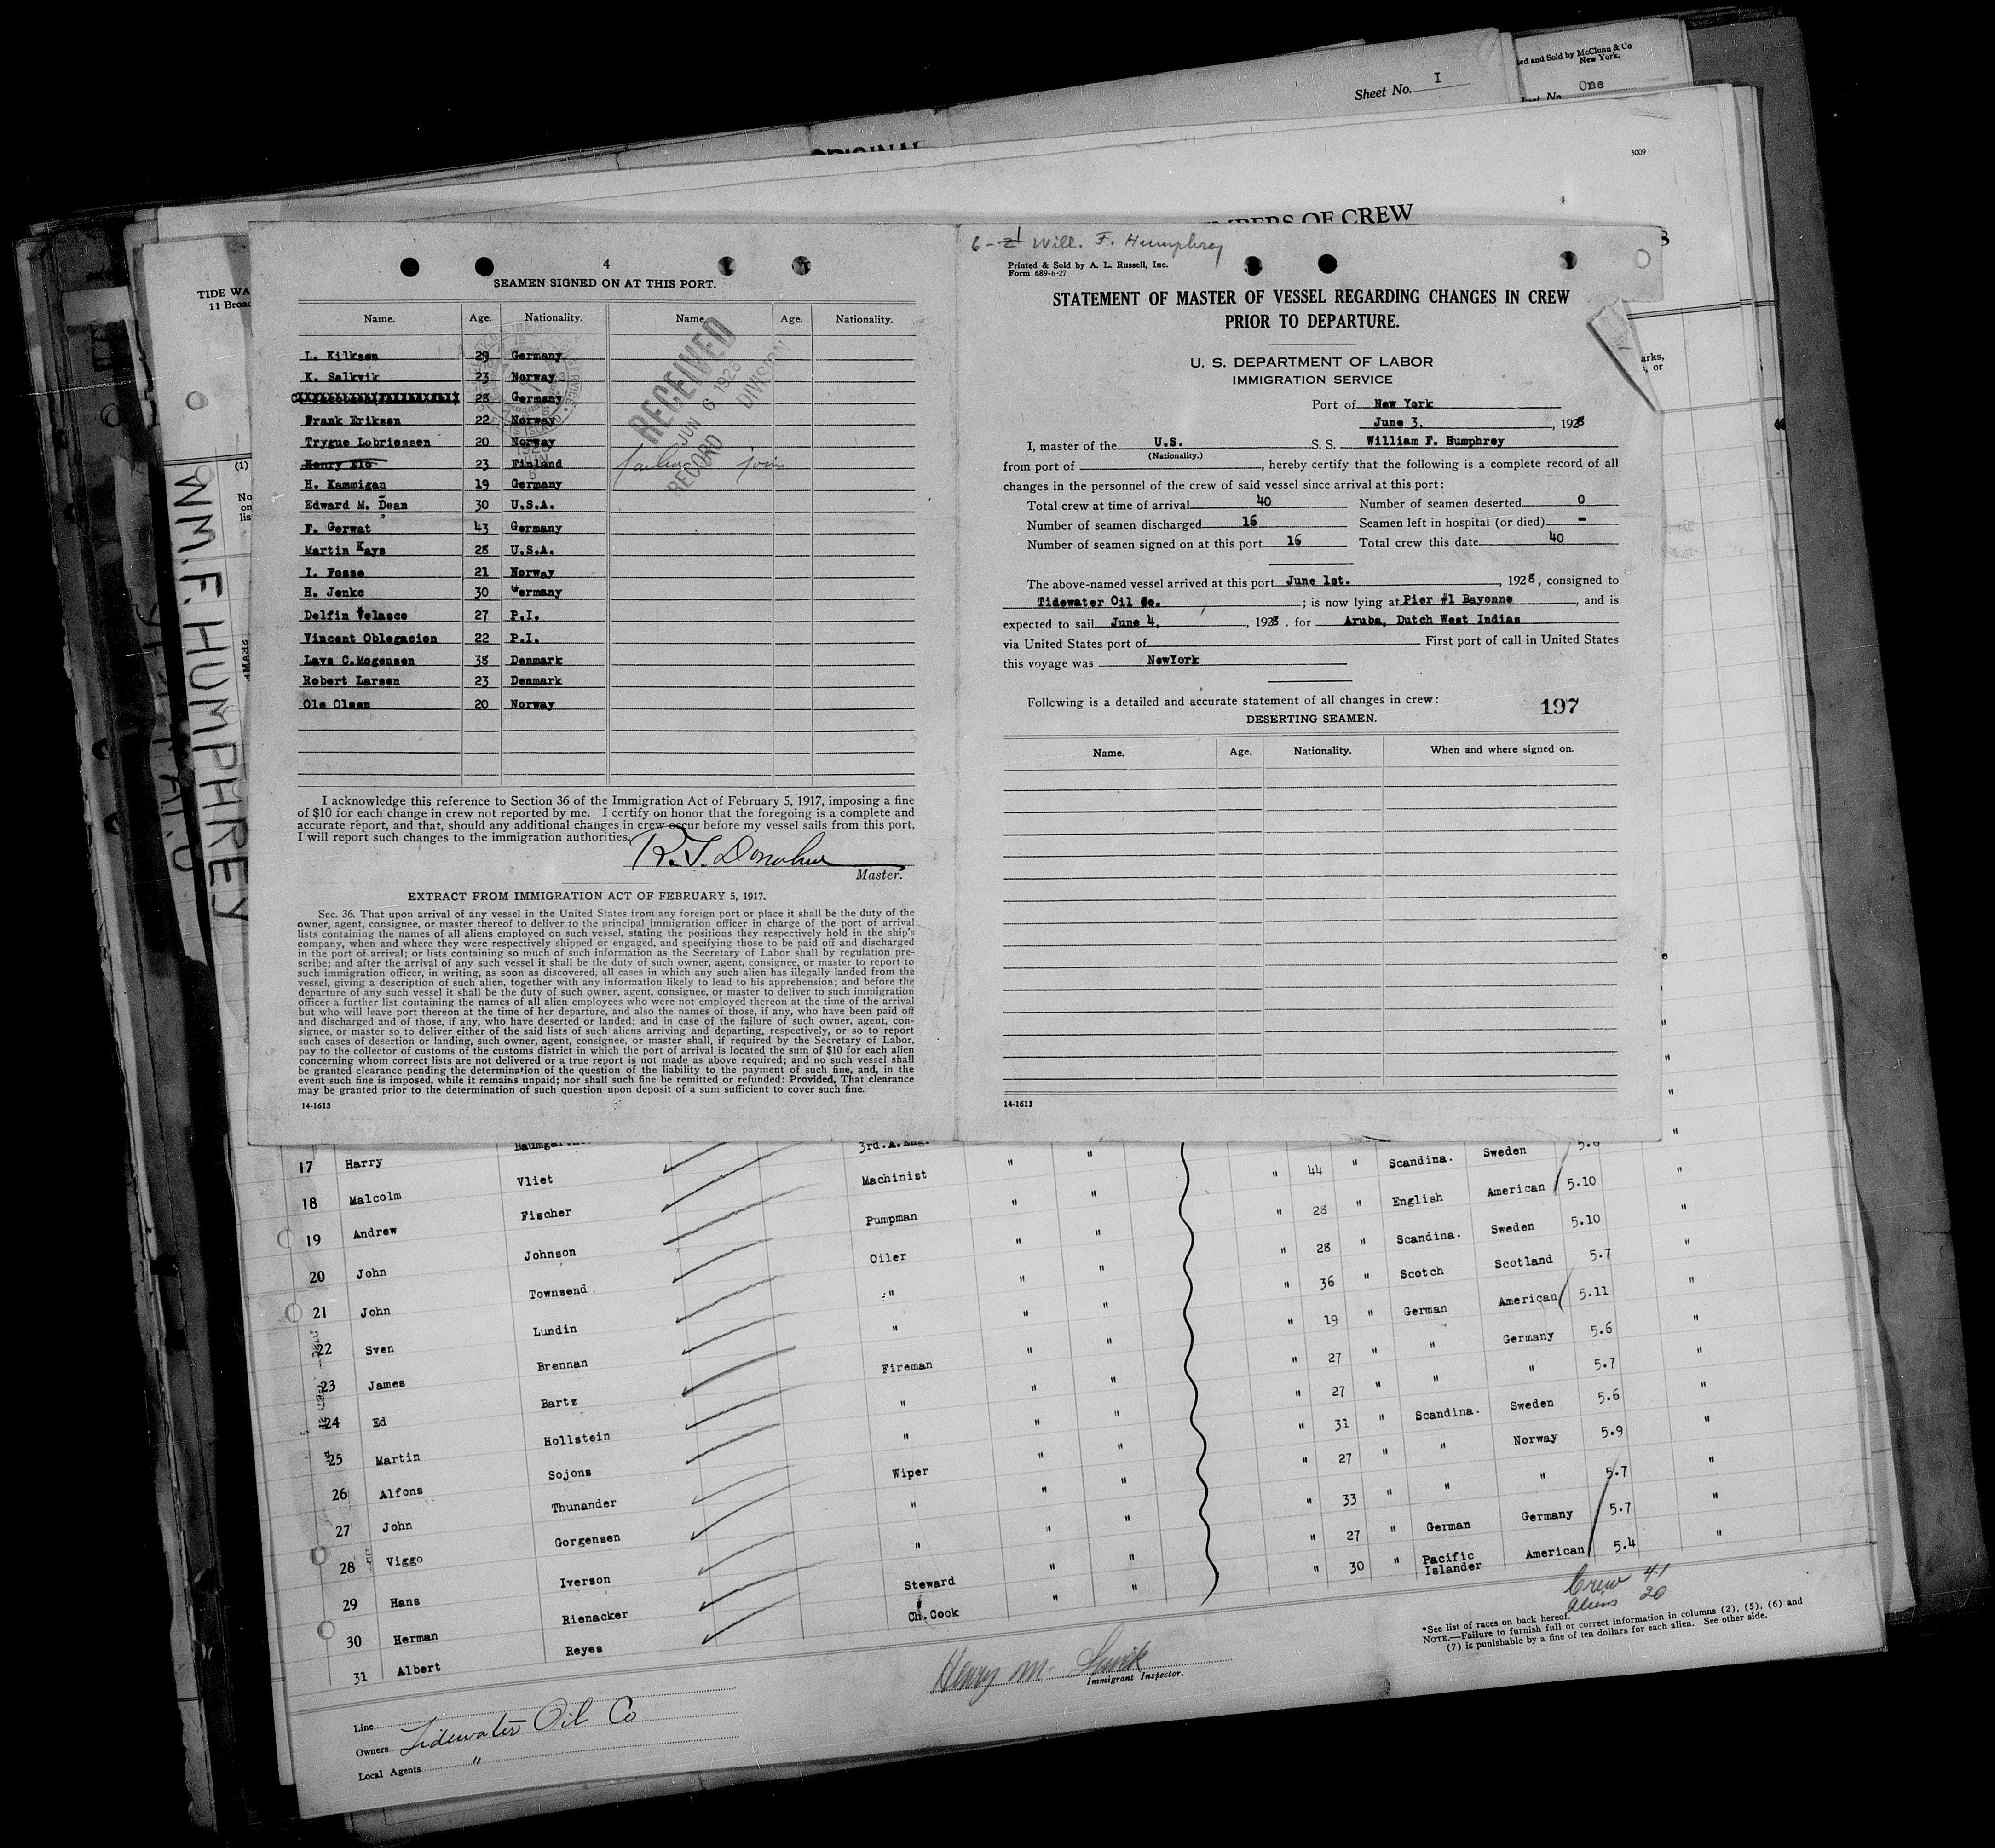 ted and Sold by McClunn & Co
New York.
Sheet No. I
One
ORIGINAL
3009
MBERS OF CREW
TIDE WA
11 Broad
(1)
WM. F. HUMPHREY
4
SEAMEN SIGNED ON AT THIS PORT.
Name. Age. Nationality. Name. Age. Nationality.
L. Kilksen 29 Germany
K. Salkvik 23 Norway
28 Germany
Frank Eriksen 22 Norway
Trygue Lobriessen 20 Norway
Henry Elo 23 Finland failed join
H. Kammigan 19 Germany
Edward M. Dean 30 U.S.A.
F. Gerwat 43 Germany
Martin Kays 28 U.S.A.
I. Fosse 21 Norway
H. Jenke 30 Germany
Delfin Velasco 27 P.I.
Vincent Oblegacion 22 P.I.
Lavs C.Mogensen 38 Denmark
Robert Larsen 23 Denmark
Ole Olsen 20 Norway
RECEIVED
JUN 6 1928
RECORD DIVISION
I acknowledge this reference to Section 36 of the Immigration Act of February 5, 1917, imposing a fine
of $10 for each change in crew not reported by me. I certify on honor that the foregoing is a complete and
accurate report, and that, should any additional changes in crew occur before my vessel sails from this port,
I will report such changes to the immigration authorities.
R. T. Donohue
Master.
EXTRACT FROM IMMIGRATION ACT OF FEBRUARY 5, 1917.
Sec. 36. That upon arrival of any vessel in the United States from any foreign port or place it shall be the duty of the
owner, agent, consignee, or master thereof to deliver to the principal immigration officer in charge of the port of arrival
lists containing the names of all aliens employed on such vessel, stating the positions they respectively hold in the ship's
company, when and where they were respectively shipped or engaged, and specifying those to be paid off and discharged
in the port of arrival; or lists containing so much of such information as the Secretary of Labor shall by regulation pre-
scribe; and after the arrival of any such vessel it shall be the duty of such owner, agent, consignee, or master to report to
such immigration officer, in writing, as soon as discovered, all cases in which any such alien has illegally landed from the
vessel, giving a description of such alien, together with any information likely to lead to his apprehension; and before the
departure of any such vessel it shall be the duty of such owner, agent, consignee, or master to deliver to such immigration
officer a further list containing the names of all alien employees who were not employed thereon at the time of the arrival
but who will leave port thereon at the time of her departure, and also the names of those, if any, who have been paid off
and discharged and of those, if any, who have deserted or landed; and in case of the failure of such owner, agent, con-
signee, or master so to deliver either of the said lists of such aliens arriving and departing, respectively, or so to report
such cases of desertion or landing, such owner, agent, consignee, or master shall, if required by the Secretary of Labor,
pay to the collector of customs of the customs district in which the port of arrival is located the sum of $10 for each alien
concerning whom correct lists are not delivered or a true report is not made as above required; and no such vessel shall
be granted clearance pending the determination of the question of the liability to the payment of such fine, and, in the
event such fine is imposed, while it remains unpaid; nor shall such fine be remitted or refunded: Provided, That clearance
may be granted prior to the determination of such question upon deposit of a sum sufficient to cover such fine.
14-1613
6-1 Will. F. Humphrey
Printed & Sold by A. L. Russell, Inc.
Form 689-6-27
STATEMENT OF MASTER OF VESSEL REGARDING CHANGES IN CREW
PRIOR TO DEPARTURE.
U. S. DEPARTMENT OF LABOR
IMMIGRATION SERVICE
Port of New York
June 3. , 1928
I, master of the U.S. S. S. William F. Humphrey
(Nationality.)
from port of , hereby certify that the following is a complete record of all
changes in the personnel of the crew of said vessel since arrival at this port:
Total crew at time of arrival 40 Number of seamen deserted 0
Number of seamen discharged 16 Seamen left in hospital (or died) -
Number of seamen signed on at this port 16 Total crew this date 40
The above-named vessel arrived at this port June 1st. , 1928, consigned to
Tidewater Oil Co. ; is now lying at Pier #1 Bayonne , and is
expected to sail June 4, , 1928. for Aruba, Dutch West Indias
via United States port of First port of call in United States
this voyage was NewYork
Following is a detailed and accurate statement of all changes in crew: 197
DESERTING SEAMEN.
Name. Age. Nationality. When and where signed on.
14-1613
Baumgar 3rd.A.Eng.
17 Harry Vliet Machinist " " " 44 " Scandina. Sweden 5.6 "
18 Malcolm Fischer Pumpman " " " 28 " English American 5.10 "
19 Andrew Johnson Oiler " " " 28 " Scandina. Sweden 5.10 "
20 John Townsend " " " " 36 " Scotch Scotland 5.7 "
21 John Lundin " " " " 19 " German American 5.11 "
22 Sven Brennan Fireman " " " 27 " " Germany 5.6 "
23 James Bartz " " " " 27 " " " 5.7 "
24 Ed Hollstein " " " " 31 " Scandina. Sweden 5.6 "
25 Martin Sojons Wiper " " " 27 " " Norway 5.9 "
26 Alfons Thunander " " " " 33 " " " 5.7 "
27 John Gorgensen " " " " 27 " German Germany 5.7 "
28 Viggo Iverson Steward " " " 30 " Pacific Islander American 5.4 "
29 Hans Rienacker Ch.Cock " "
30 Herman Reyes
31 Albert
Crew 41
Aliens 20
*See list of races on back hereof.
NOTE.—Failure to furnish full or correct information in columns (2), (5), (6) and
(7) is punishable by a fine of ten dollars for each alien. See other side.
Henry M.
Immigrant Inspector.
Line
Owners Tidewater Oil Co
Local Agents "